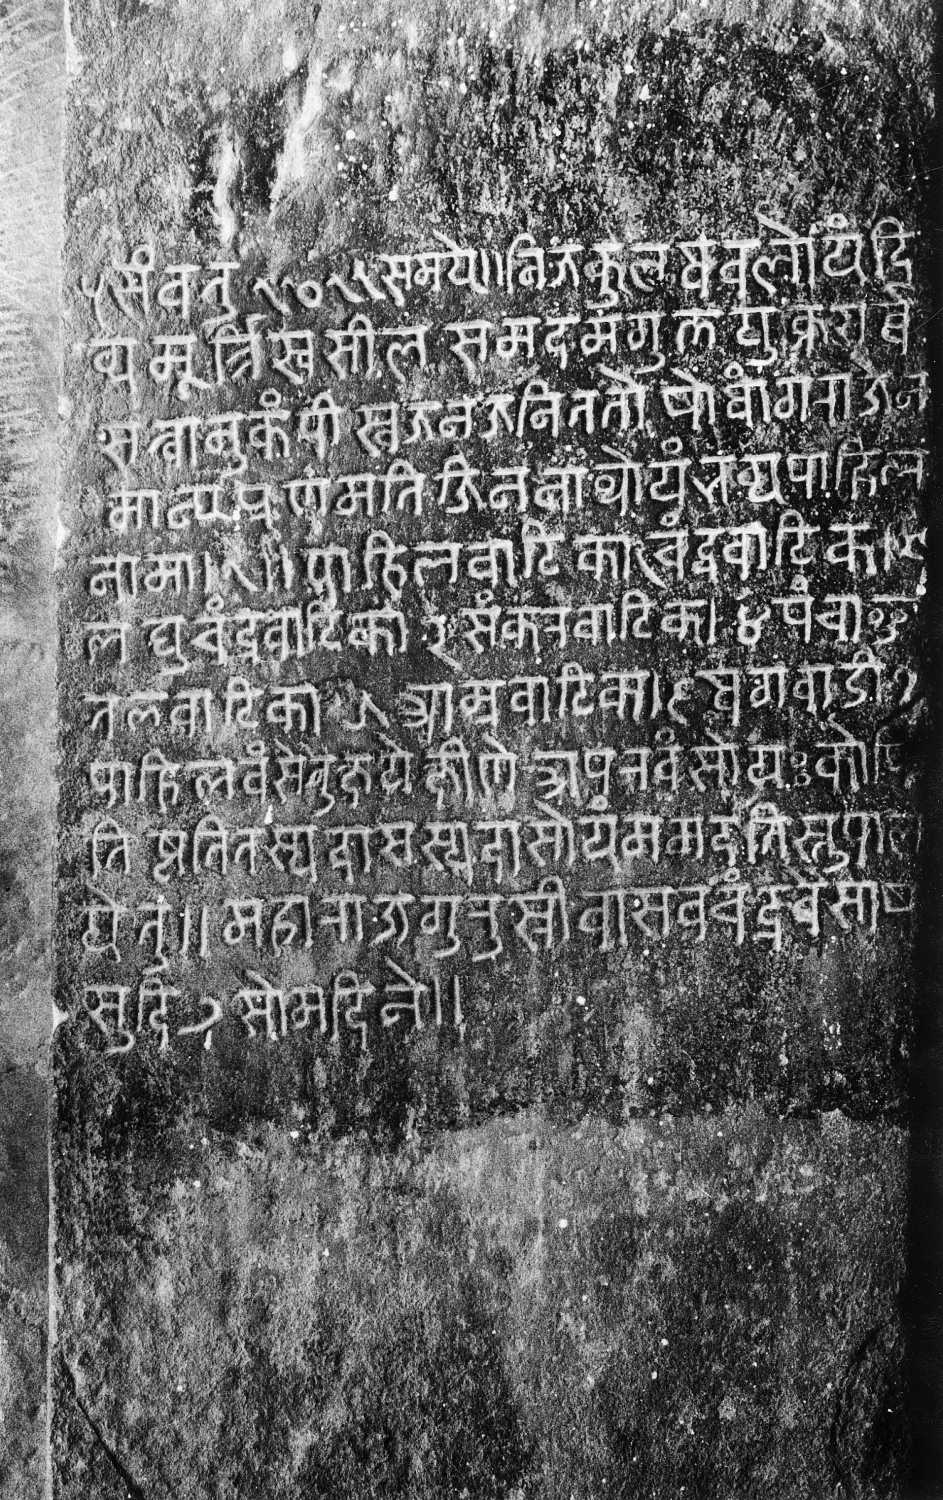 ँ संवत् १०११ समये ॥ निजकुलधवलोयं दि
व्यमूर्त्ति स्वसील समदमगुणयुक्त सर्व्व
सत्वानुकंपी स्वजनजनिततोषो धांगराजेन
मान्य प्रणमति जिननाथोयं भव्य पाहिल
नामा । १ ॥ पाहिलवाटिका १ चंद्रवाटिका २
लघुचंद्रवाटिका ३ संकरवाटिका ४ पंचाइ
तलवाटिका ५ आम्रवाटिका ६ धंगवाडी ७
पाहिलवंसे तु क्षये क्षीणे अपरवंसो यः कोपि
तिष्ठति तस्य दासस्य दासोयं मम दत्तिस्तु पाल
येत् ॥ महाराजगुरु स्री वासवचंद्र वैसाष
सुदि ७ सोमदिने ॥